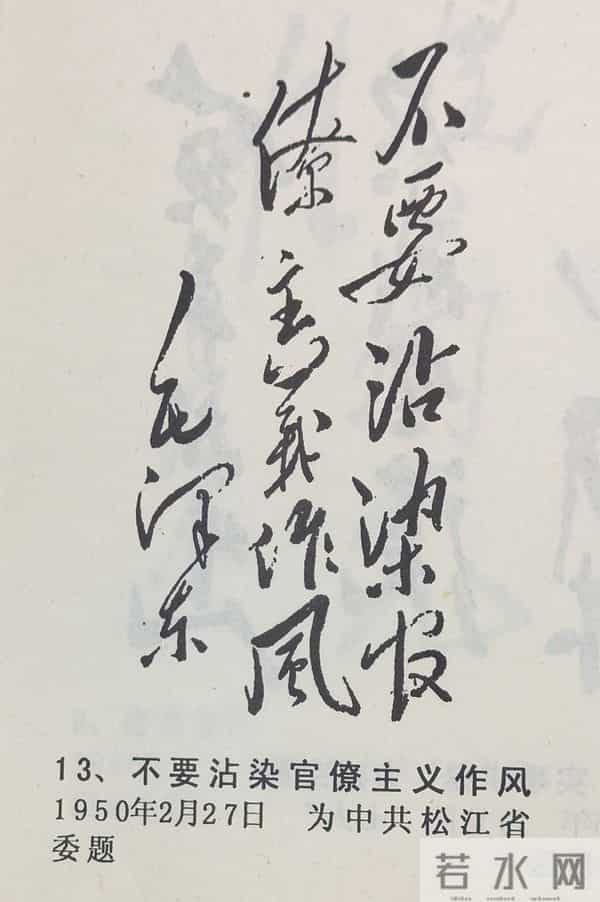 不要沾染官
僚主义作風
毛泽东
13、不要沾染官僚主义作风
1950年2月27日 为中共松江省
委题
若水网